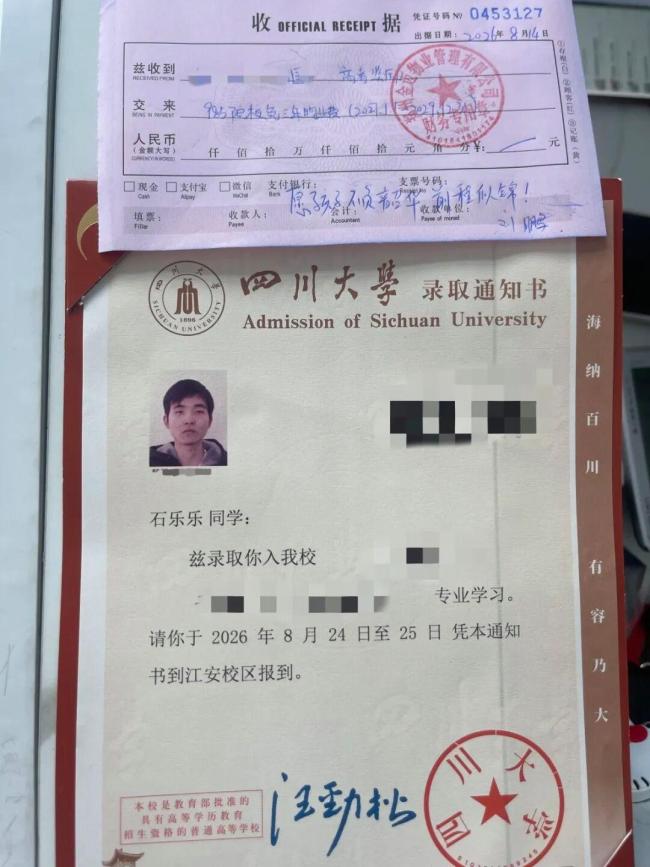 收 OFFICIAL RECEIPT 据
凭证号码 № 0453127
出据日期：2026年8月14日
兹收到
RECEIVED FROM
交来
BEING IN PAYMENT
人民币
(金额大写)
CURRENCY(IN WORDS)
仟 佰 拾 万 仟 佰 拾 元 角 分 ¥： 元
现金 Cash 支付宝 Alipay 微信 支付银行： Bank 支票号码：
愿孩子不负韶华 前程似锦！
填票： 收款人： 会计： 收款单位：
Filler Payee Accountant Payee of moned
物业管理有限公司
财务专用章
四川大学
SICHUAN UNIVERSITY
1896
四川大學 录取通知书
Admission of Sichuan University
石乐乐 同学：
兹录取你入我校
专业学习。
请你于 2026 年 8 月 24 日至 25 日 凭本通知
书到江安校区报到。
海纳百川 有容乃大
本校是教育部批准的
具有高等学历教育
招生资格的普通高等学校
汪劲松
四川大学